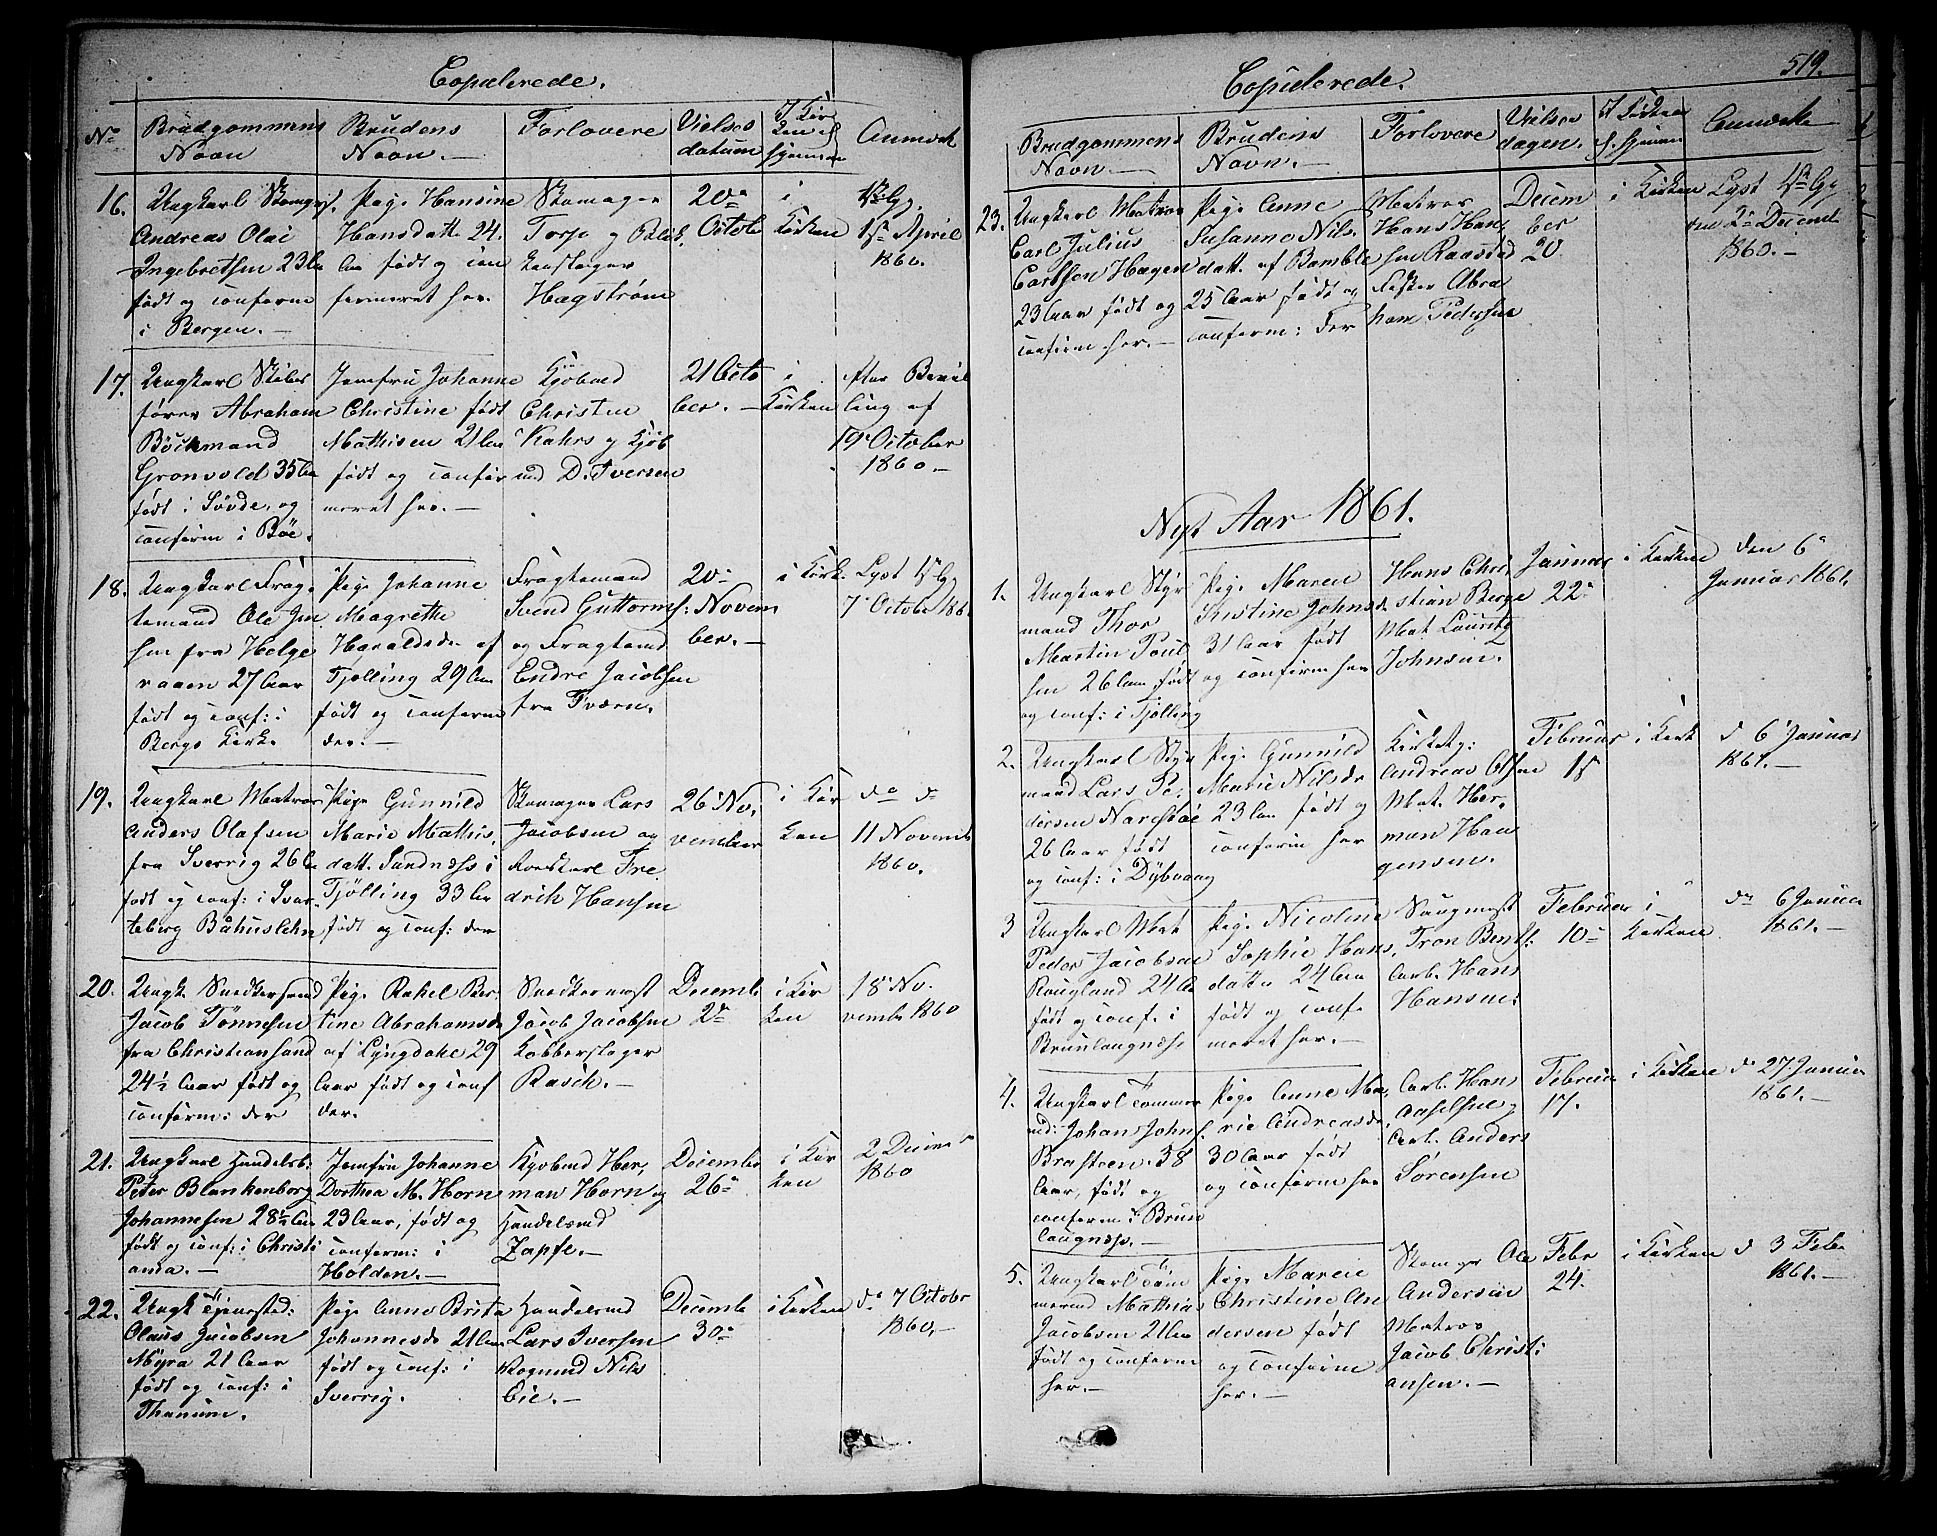 Copulerede.
No Brudgommens Navn
Brudens Navn. —
Forlovere
Vielses datum
I Kirken el. hjemme
Anmærk
16. Ungkarl Skomagers.
Andreas Olai
Ingebretsen 23 Aar
født og conferm
i Bergen. —
Pige Hansine
Hansdatter 24
Aar født og con
fermeret her.
Skomager
Torjo og Blik
kenslager
Hagstrøm
20de
October
i
Kirken
1ste Gg.
1ste April
1860.
17. Ungkarl Skibs
fører Abraham
Böckmand
Gronvold 35 Aar
født i Sövde, og
conferm i Böe.
Jomfru Johanne
Christine født
Mathisen 21 Aar
født og confer
meret her. —
Kjöbmd
Christen
Kahrs og Kjöb
md D. Iversen
21 Octo
ber. —
i
Kirken
efter Bevil
ling af
19de October
1860. —
18. Ungkarl Frag-
temand Ole Jen
sen fra Helge
raaen 27 Aar
født og conf: i
Bergs Kirke
Pige Johanne
Magrethe
Haraldsdr af
Tjølling 29 Aar
født og conferm
der. —
Fragtemand
Svend Guttorms.
og Fragtemd
Endre Jacobsen
fra Tværn.
20de
Novem
ber. —
i Kirk.
Lyst 1ste Gg
7de October 1860
19. Ungkarl Matros
Anders Olafsen
fra Sverrig 26 Aar
født og conf: i Svar-
teberg Båhuslehn
Pige Gunnild
Marie Mathis,
datt. Sundness i
Tjølling 33 Aar
født og conf: der
Skomager Lars
Jacobsen og
Roeskarl Fre
drik Hansen
26 No,
vember
i Kir
ken
do do
11 Novemb
1860.
20. Ungk. Snedkersvend
Jacob Tönnesen
fra Christiansand
24½ Aar født og
conferm: der
Pige Rakel Ber-
tine Abrahamsdr
af Lyngdahl 29
Aar født og conf
der.
Snedkermest
Jacob Jacobsen
Kobberslager
Rasch. —
Decemb
2de
i Kir
ken
18de No.
vembr 1860
21. Ungkarl Handelsb:
Peter Blankenborg
Johannesen 28½ Aar
født og conf: i Christi
ania. —
Jomfru Johanne
Dorthea M. Horn
23 Aar, født og
conferm: i
Holden. —
Kjøbmd Her,
man Horn og
Handelsmd
Zapfe. —
December
26de
i Kir
ken
2 Decemb
1860
22. Ungk Tjenested:
Olaus Jacobsen
Myra 21 Aar
født og conf: i
Thanum.
Pige Anne Brita
Johannesdr 21 Aar
født og conf: i
Sverrig.
Handelsmd
Lars Iversen
Vognmd Nils
Eie. —
Decemb
30de
i Kirken
do 7 Octobr
1860, —
Copulerede.
519.
Brudgommens
Navn. —
Brudens
Navn. —
Forlovere
Vielses
dagen.
I Kirken
el. hjemme
Anmerke
23. Ungkarl Matros
Carl Julius
Carlsen Hagen
23 Aar født og
conferm her. —
Pige Anne
Susanne Nils,
datt. af Bamble
25 Aar født og
conferm: der
Matros
Hans Han,
sen Raastad
Fisker Abra
ham Pedersen
Decem
ber
20
i Kirken
Lyst 1ste Gg
den 2de Decemb
1860. —
Nyt Aar 1861.
1. Ungkarl Styr
mand Thor
Martin Poul
sen 26 Aar født
og conf: i Tjølling
Pige Maren
Kristine Johnsdr
31 Aar født
og conferm her
Hans Chri,
stian Berge
Mat Lauritz
Johnsen.
Januar
22de
i Kirken
den 6de
Januar 1861.
2. Ungkarl Styr
mand Lars Pe,
dersen Narestöe
26 Aar født
og conf: i Dybvaag
Pige Gunnild
Marie Nilsdr
23 Aar født og
conferm her
Kirketj:
Andreas Olsen
Mat. Her,
man Han
gensen.
Februar
15
i Kirk
d 6 Januar
1861. —
3 Ungkarl Mat
Peder Jacobsen
Rougland 24 Aar
født og conf: i
Brunlaugnæss
Pige Nicoline
Sophie Hans,
datter 24 Aar
født og confe
meret her. —
Saugmest
Tron Bents:
Arb. Hans
Hansen.
Februar
10de
i
Kirken
do 6 Januar
1861. —
4. Ungkarl Tømmer
md: Johan Johns.
Brasteen 38
Aar, født og
conferm i Brun
laugnæss. —
Pige Anne Ma,
rie Andreasdr,
30 Aar født
og conferm her
Arb. Hans
Axelsen og
Arb. Anders
Sörensen
Februar
17.
i Kirken
do 27 Januar
1861. —
5. Ungkarl Töm
mermd Mathias
Jacobsen 21 Aar
født og conferm
her. —
Pige Maren
Christine An
dersen født
og conferm
her. —
Skomager Ole
Andersen
Matros
Jacob Christi
ansen. —
Febr
24.
i Kirken
d 3 Febr
1861. —